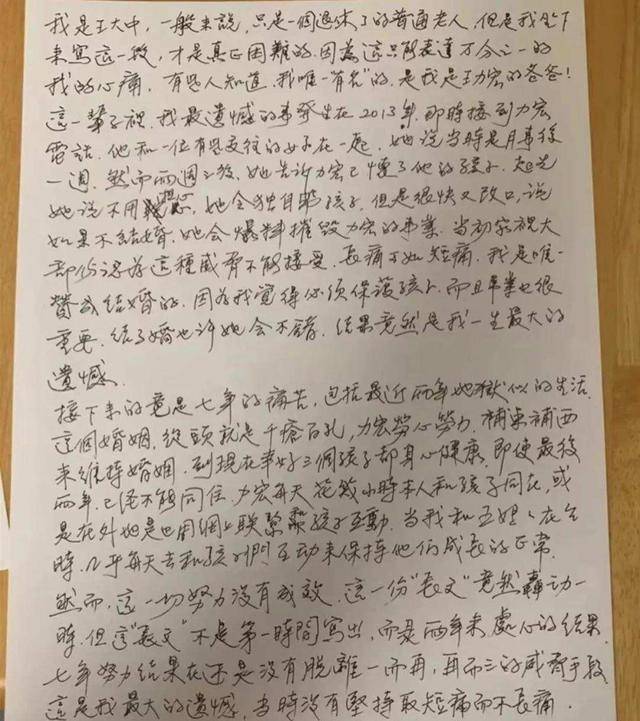 我是王大中，一般來說，只是一個退休了的普通老人，但是我坐下
來寫這一段，才是真正困難的，因為這只能表達萬分之一的
我的心痛，有些人知道，我唯一"有名"的，是我是王力宏的爸爸！
這一輩子裡，我最遺憾的事發生在2013年，即時接到力宏
電話，他和一位有些交往的女子在一起，她說當時是月事後
一週，然而兩週之後，她告訴力宏已懷了他的孩子，起先
她說不用擔心，她会独自帶孩子，但是很快又改口，說
如果不結婚，她会爆料摧毀力宏的事業，當初家裡大
部份認為這種威脅不能接受，長痛不如短痛，我是唯一
贊成結婚的，因為我覺得必須保護孩子，而且事業也很
重要，結了婚也许她会不錯，结果竟然是我一生最大的
遺憾。
接下來的竟是七年的痛苦，包括最近兩年地獄似的生活
這個婚姻，從頭就是千瘡百孔，力宏勞心勞力，補東補西
來維持婚姻，到現在幸好三個孩子都身心健康，即使最後
兩年，已經不能同住，力宏每天花幾小時本人和孩子同在，或
是在外地是也用網上联繫和孩子互動，當我和王媽媽在台
時，几乎每天去和孩子們互动來保持他们成長的正常
然而，這一切努力没有成效，這一份"長文"竟然轟动一
時，但這"長文"不是第一時間寫出，而是兩年來處心的结果，
七年努力结果在还是没有脱離一而再，再而三的威脅手段
這是我最大的遺憾，當時没有堅持取短痛而不長痛．